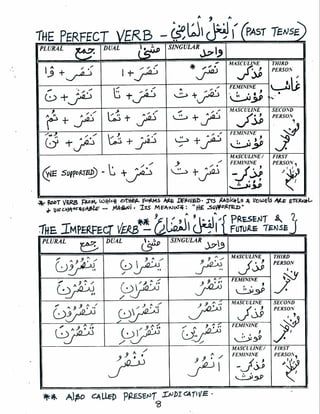 THE PERFECT VERB - اَلْفِعْلُ الْمَاضِيْ (PAST TENSE)
PLURAL جمع DUAL مثنى SINGULAR واحد
نَصَرَ + وْا نَصَرَ + ا نَصَرَ * MASCULINE مُذكر THIRD PERSON غائب
نَصَرْ + نَ نَصَرَ + تَا نَصَرَ + تْ FEMININE مُؤنث
نَصَرْ + تُمْ نَصَرْ + تُمَا نَصَرْ + تَ MASCULINE مُذكر SECOND PERSON مخاطب
نَصَرْ + تُنَّ نَصَرْ + تُمَا نَصَرْ + تِ FEMININE مُؤنث
(WE SUPPORTED) - نَصَرْ + نَا نَصَرْ + تُ MASCULINE / FEMININE مُذكر - مُؤنث FIRST PERSON متكلم
* ROOT VERB FROM WHICH OTHER FORMS ARE DERIVED. ITS RADICALS & VOWELS ARE ETERNAL
& UNCHANGEABLE - MABNI. ITS MEANING: "HE SUPPORTED"
THE IMPERFECT VERB ** اَلْفِعْلُ الْمُضَارِعُ { PRESENT & FUTURE TENSE }
PLURAL جمع DUAL مثنى SINGULAR واحد
يَنْصُرُوْنَ يَنْصُرَانِ يَنْصُرُ MASCULINE مُذكر THIRD PERSON غائب
يَنْصُرْنَ تَنْصُرَانِ تَنْصُرُ FEMININE مُؤنث
تَنْصُرُوْنَ تَنْصُرَانِ تَنْصُرُ MASCULINE مُذكر SECOND PERSON مخاطب
تَنْصُرْنَ تَنْصُرَانِ تَنْصُرِيْنَ FEMININE مُؤنث
نَنْصُرُ اَنْصُرُ MASCULINE / FEMININE مُذكر - مُؤنث FIRST PERSON متكلم
** ALSO CALLED PRESENT INDICATIVE.
8